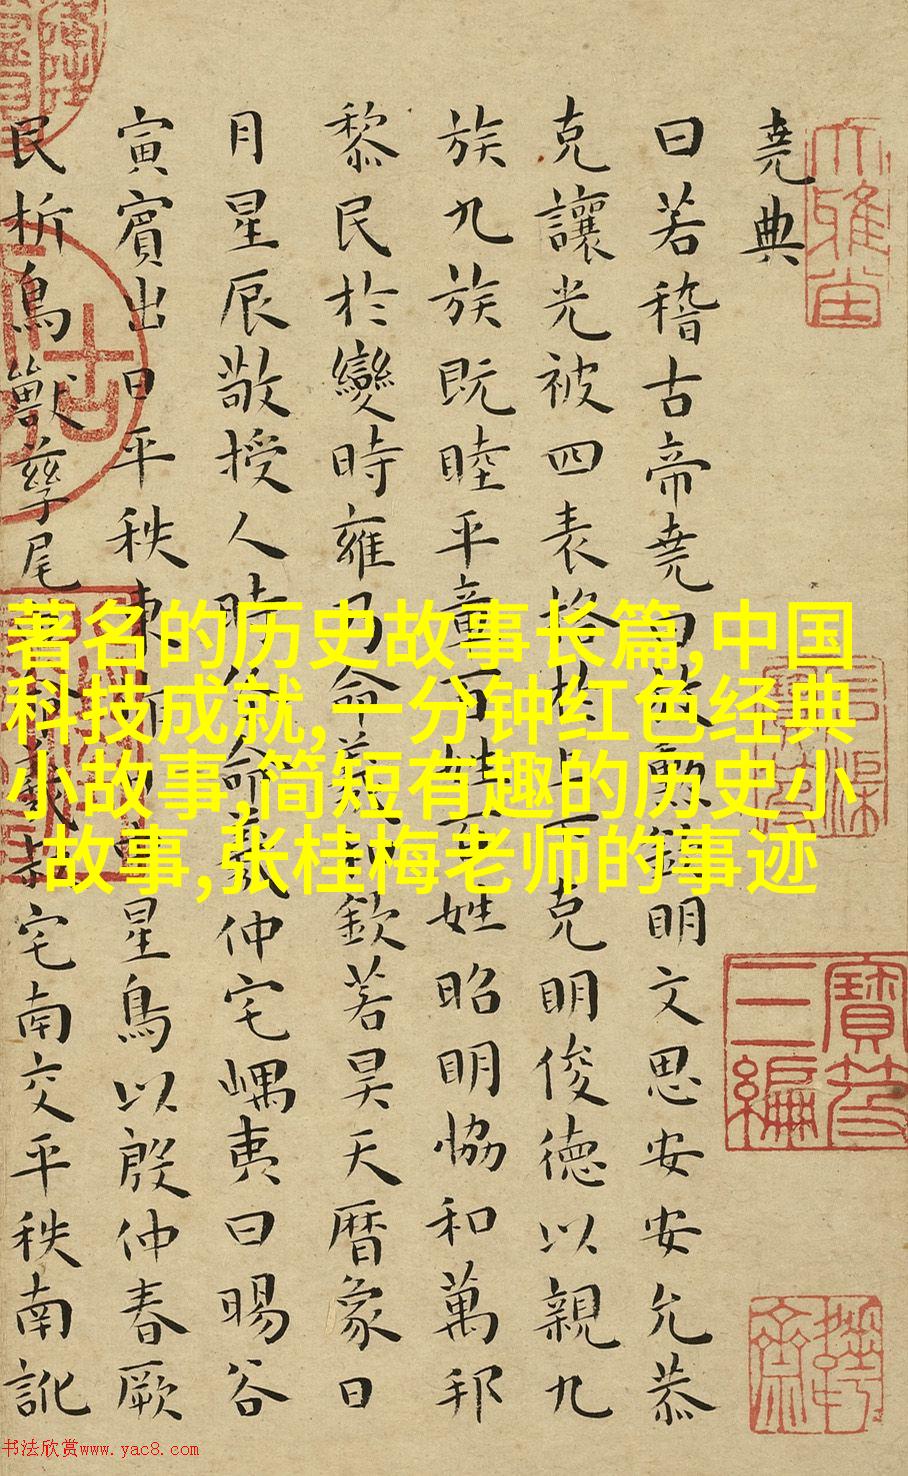 堯典
曰若稽古帝堯曰放勲欽明文思安安允恭
克讓光被四表格於上下克明俊德以親九
族九族既睦平章百姓百姓昭明恊和萬邦
黎民於變時雍乃命羲和欽若昊天曆象日
月星辰敬授人時分命羲仲宅嵎夷曰暘谷
寅賓出日平秩東作日中星鳥以殷仲春厥
民析鳥獸孳尾申命羲叔宅南交平秩南訛
著名的历史故事长篇,中国
科技成就,一分钟红色经典
小故事,简短有趣的历史小
故事,张桂梅老师的事迹
寶笈
三編
书法欣赏www.yac8.com